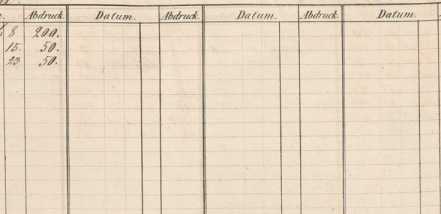 Abdruck. Datum. Abdruck. Datum. Abdruck. Datum.
8 200.
15. 50.
23 50.